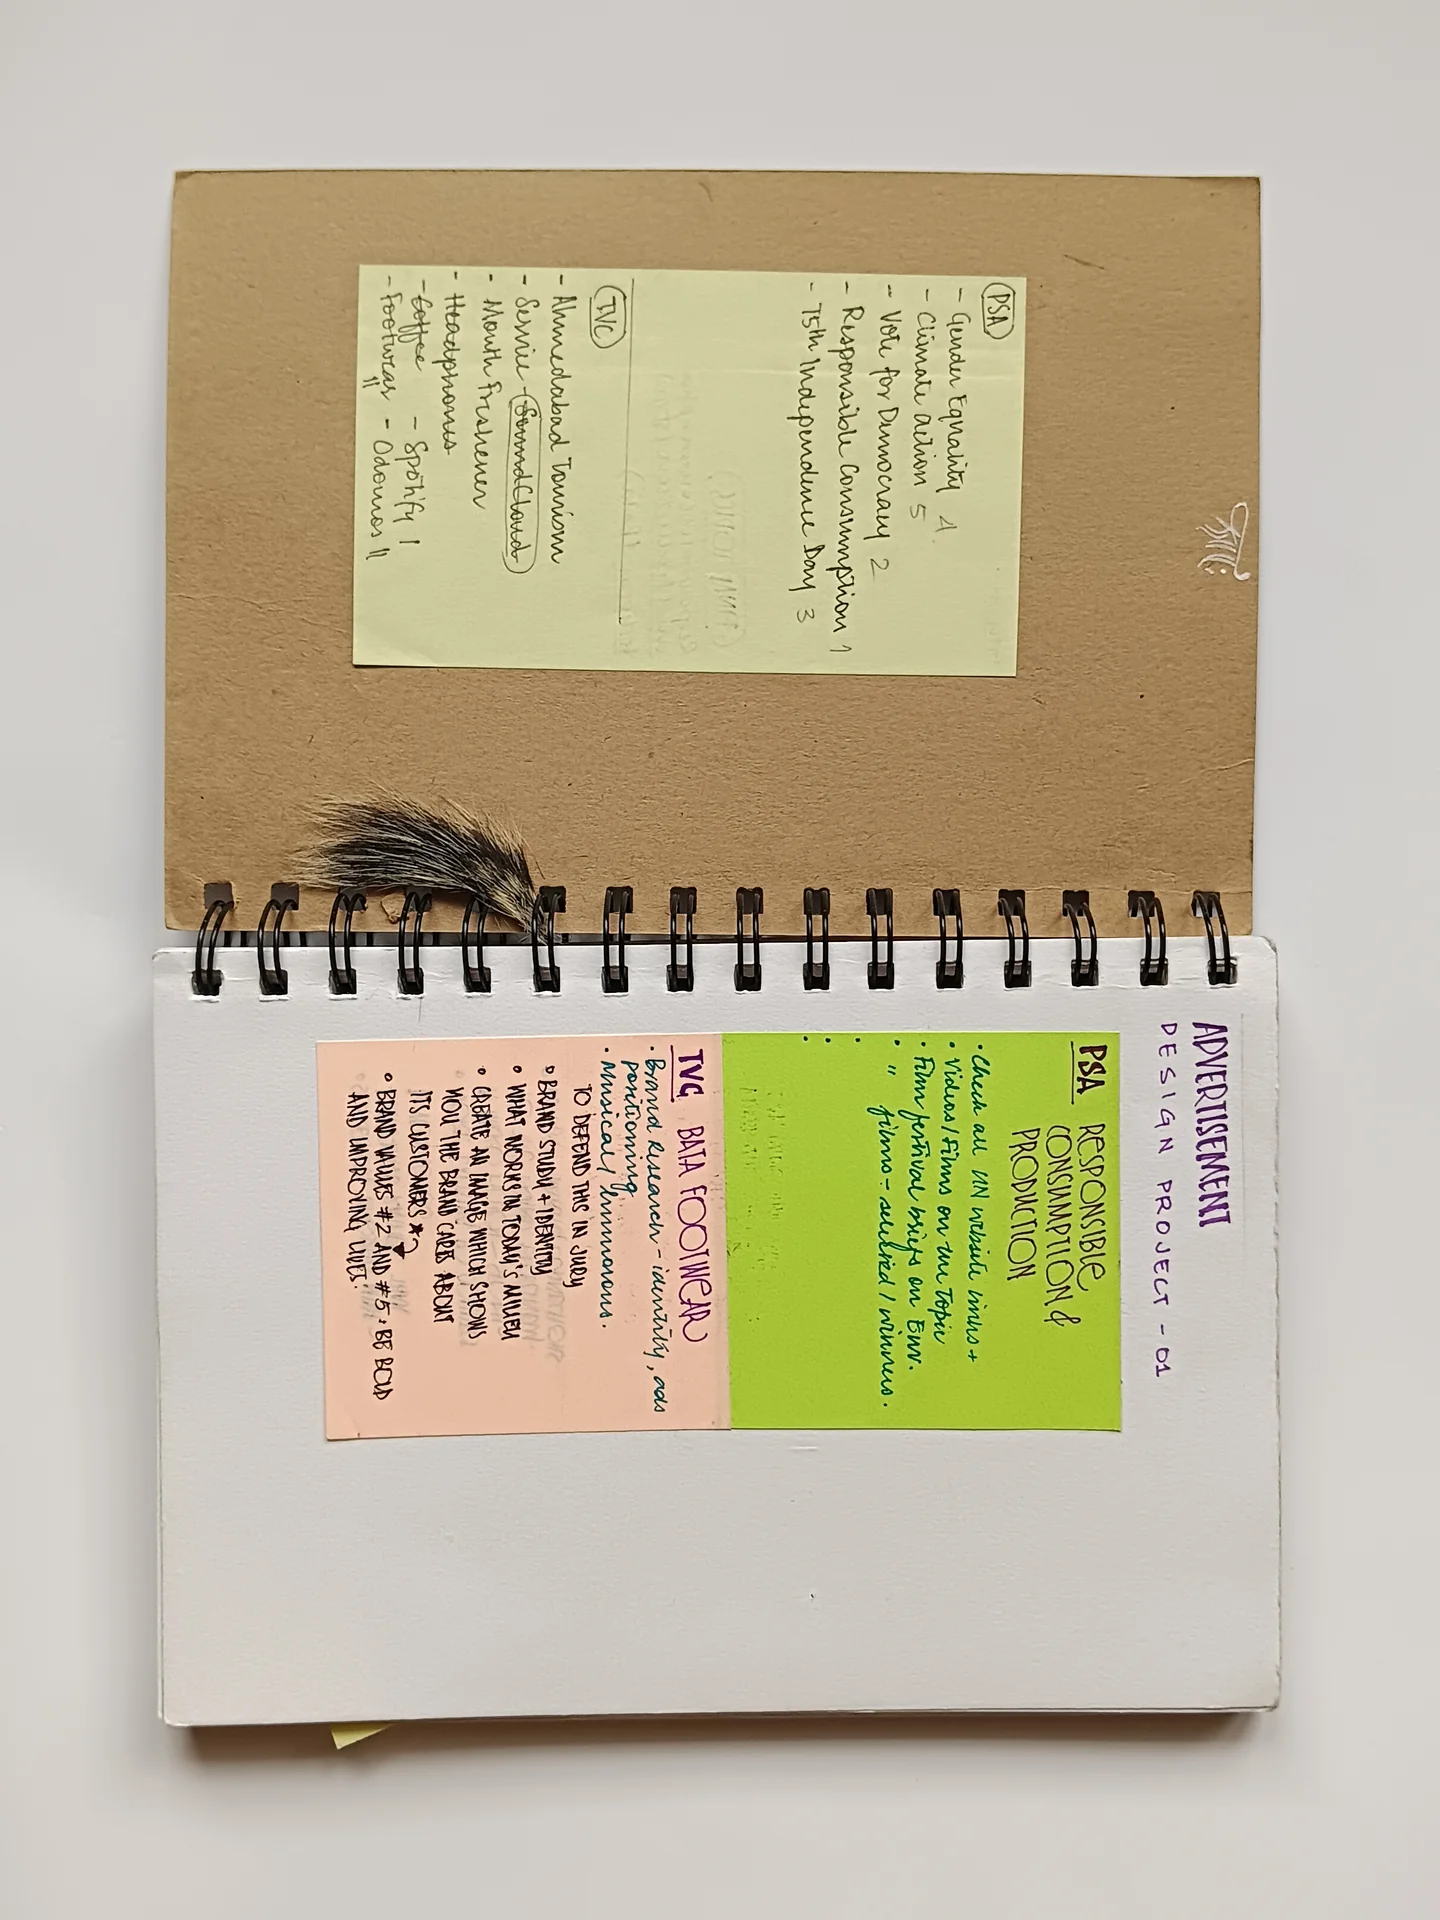 PSA
- Gender Equality 4
- Climate action 5
- Vote for Democracy 2
- Responsible Consumption 1
- 75th Independence Day 3
TVC
- Ahmedabad Tourism
- Service - SoundCloud
- Mouth Freshener
- Headphones
- Coffee - Spotify I
- Footwear II - Odomos II
ADVERTISEMENT
DESIGN PROJECT - 01
PSA RESPONSIBLE
CONSUMPTION &
PRODUCTION
• Check all UN website links +
• Videos/Films on the topic
• Film festival briefs on Env.
• " films - selected / winners.
•
•
•
TVC BATA FOOTWEAR
• Brand Research - identity, ads
positioning
• Musical/humorous.
TO DEFEND THIS IN JURY
• BRAND STUDY + IDENTITY
• WHAT WORKS IN TODAY'S MILIEU
• CREATE AN IMAGE WHICH SHOWS
HOW THE BRAND CARES ABOUT
ITS CUSTOMERS*
• BRAND VALUES #2 AND #5 : BE BOLD
AND IMPROVING LIVES.